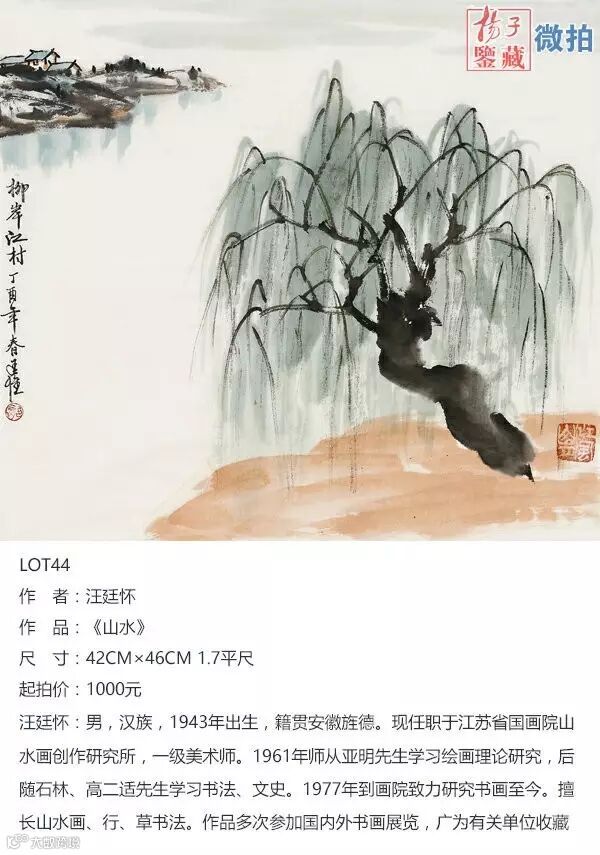 扬子
鉴藏
微拍
柳岸江村 丁酉年春廷怀
LOT44
作 者：汪廷怀
作 品：《山水》
尺 寸：42CM×46CM 1.7平尺
起拍价：1000元
汪廷怀：男，汉族，1943年出生，籍贯安徽旌德。现任职于江苏省国画院山
水画创作研究所，一级美术师。1961年师从亚明先生学习绘画理论研究，后
随石林、高二适先生学习书法、文史。1977年到画院致力研究书画至今。擅
长山水画、行、草书法。作品多次参加国内外书画展览，广为有关单位收藏
大数跨境